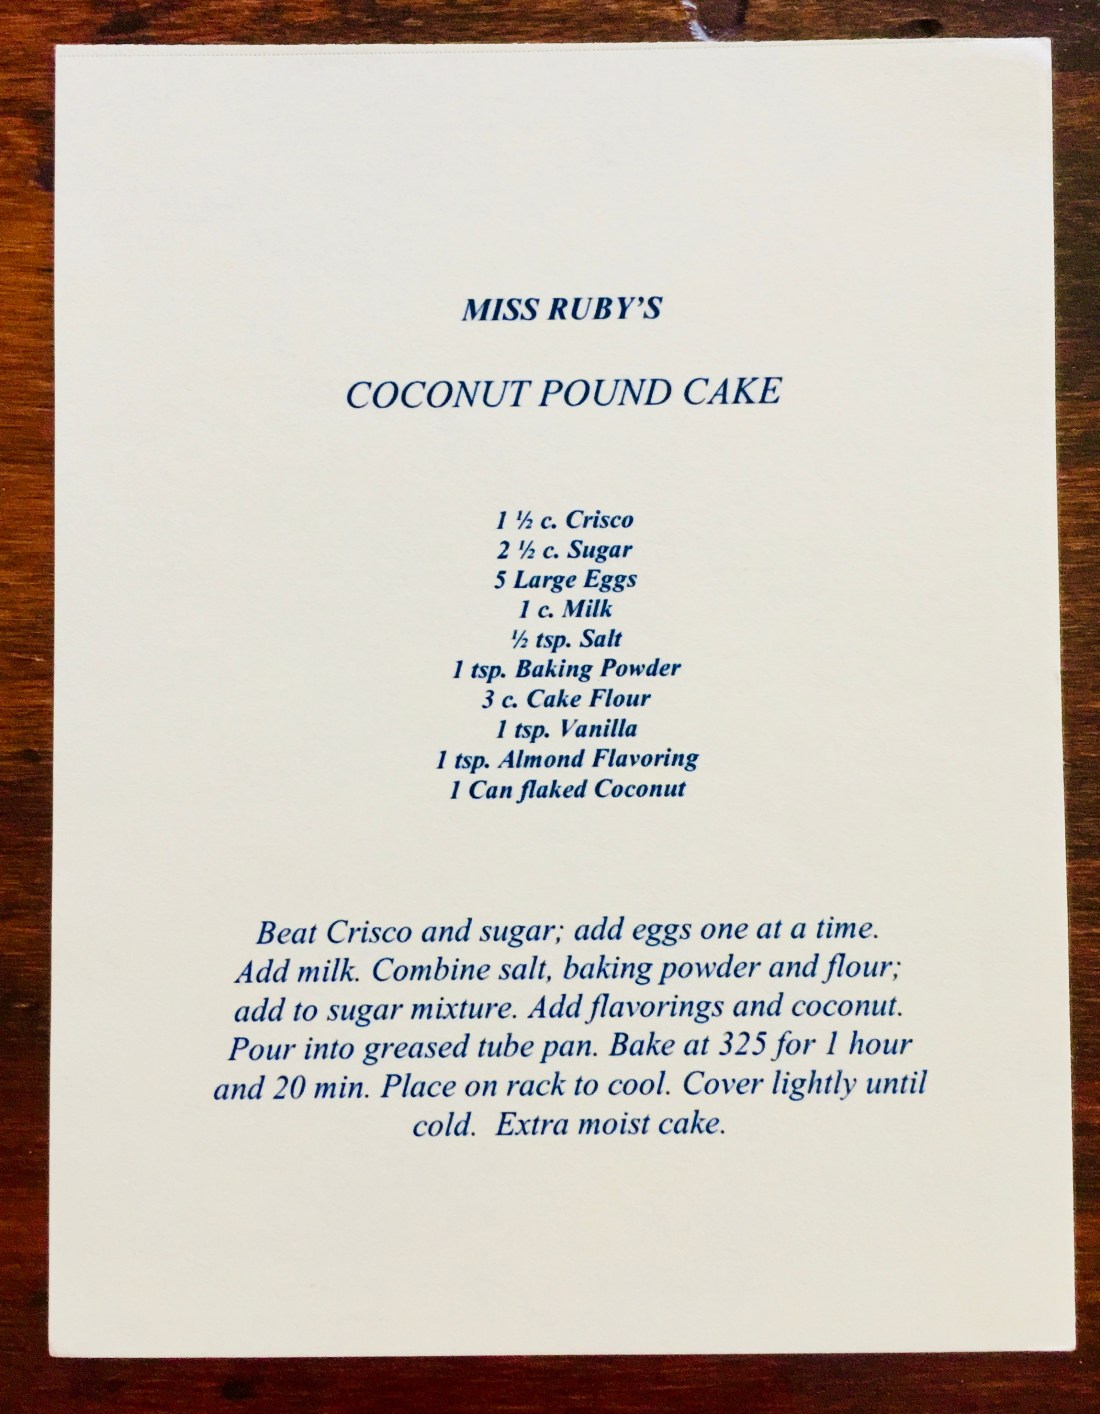 MISS RUBY'S
COCONUT POUND CAKE
1 ½ c. Crisco
2 ½ c. Sugar
5 Large Eggs
1 c. Milk
½ tsp. Salt
1 tsp. Baking Powder
3 c. Cake Flour
1 tsp. Vanilla
1 tsp. Almond Flavoring
1 Can flaked Coconut
Beat Crisco and sugar; add eggs one at a time.
Add milk. Combine salt, baking powder and flour;
add to sugar mixture. Add flavorings and coconut.
Pour into greased tube pan. Bake at 325 for 1 hour
and 20 min. Place on rack to cool. Cover lightly until
cold.  Extra moist cake.